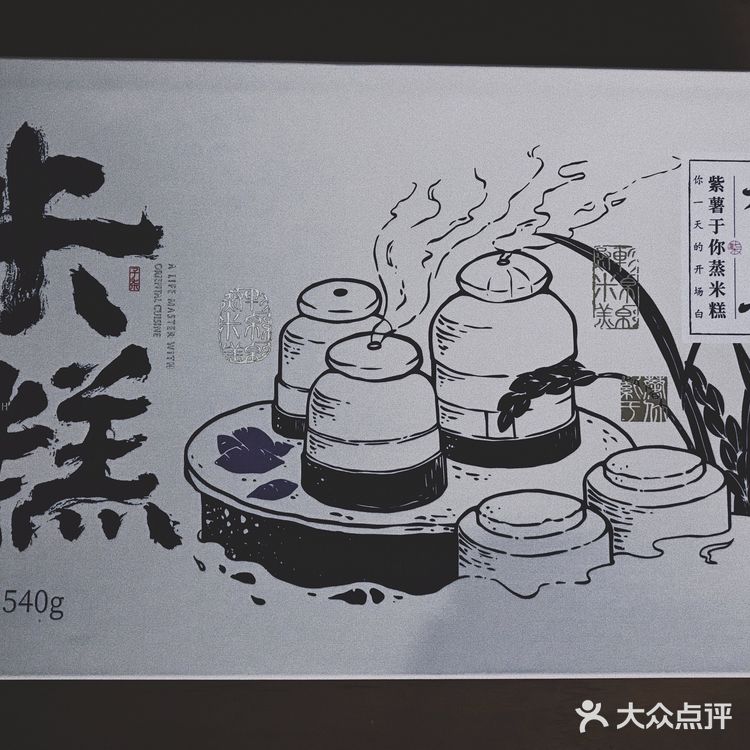 米糕
A LIFE MASTER WITH
ORIENTAL CUISINE
540g
紫薯于你蒸米糕
你一天的开场白
大众点评